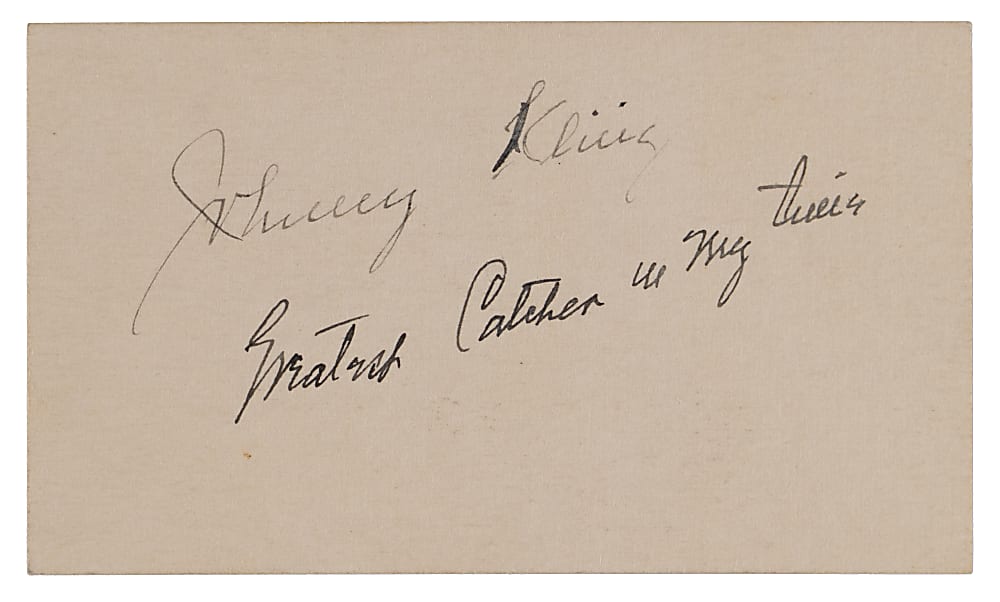 Johnny Kling
Greatest Catcher in My time